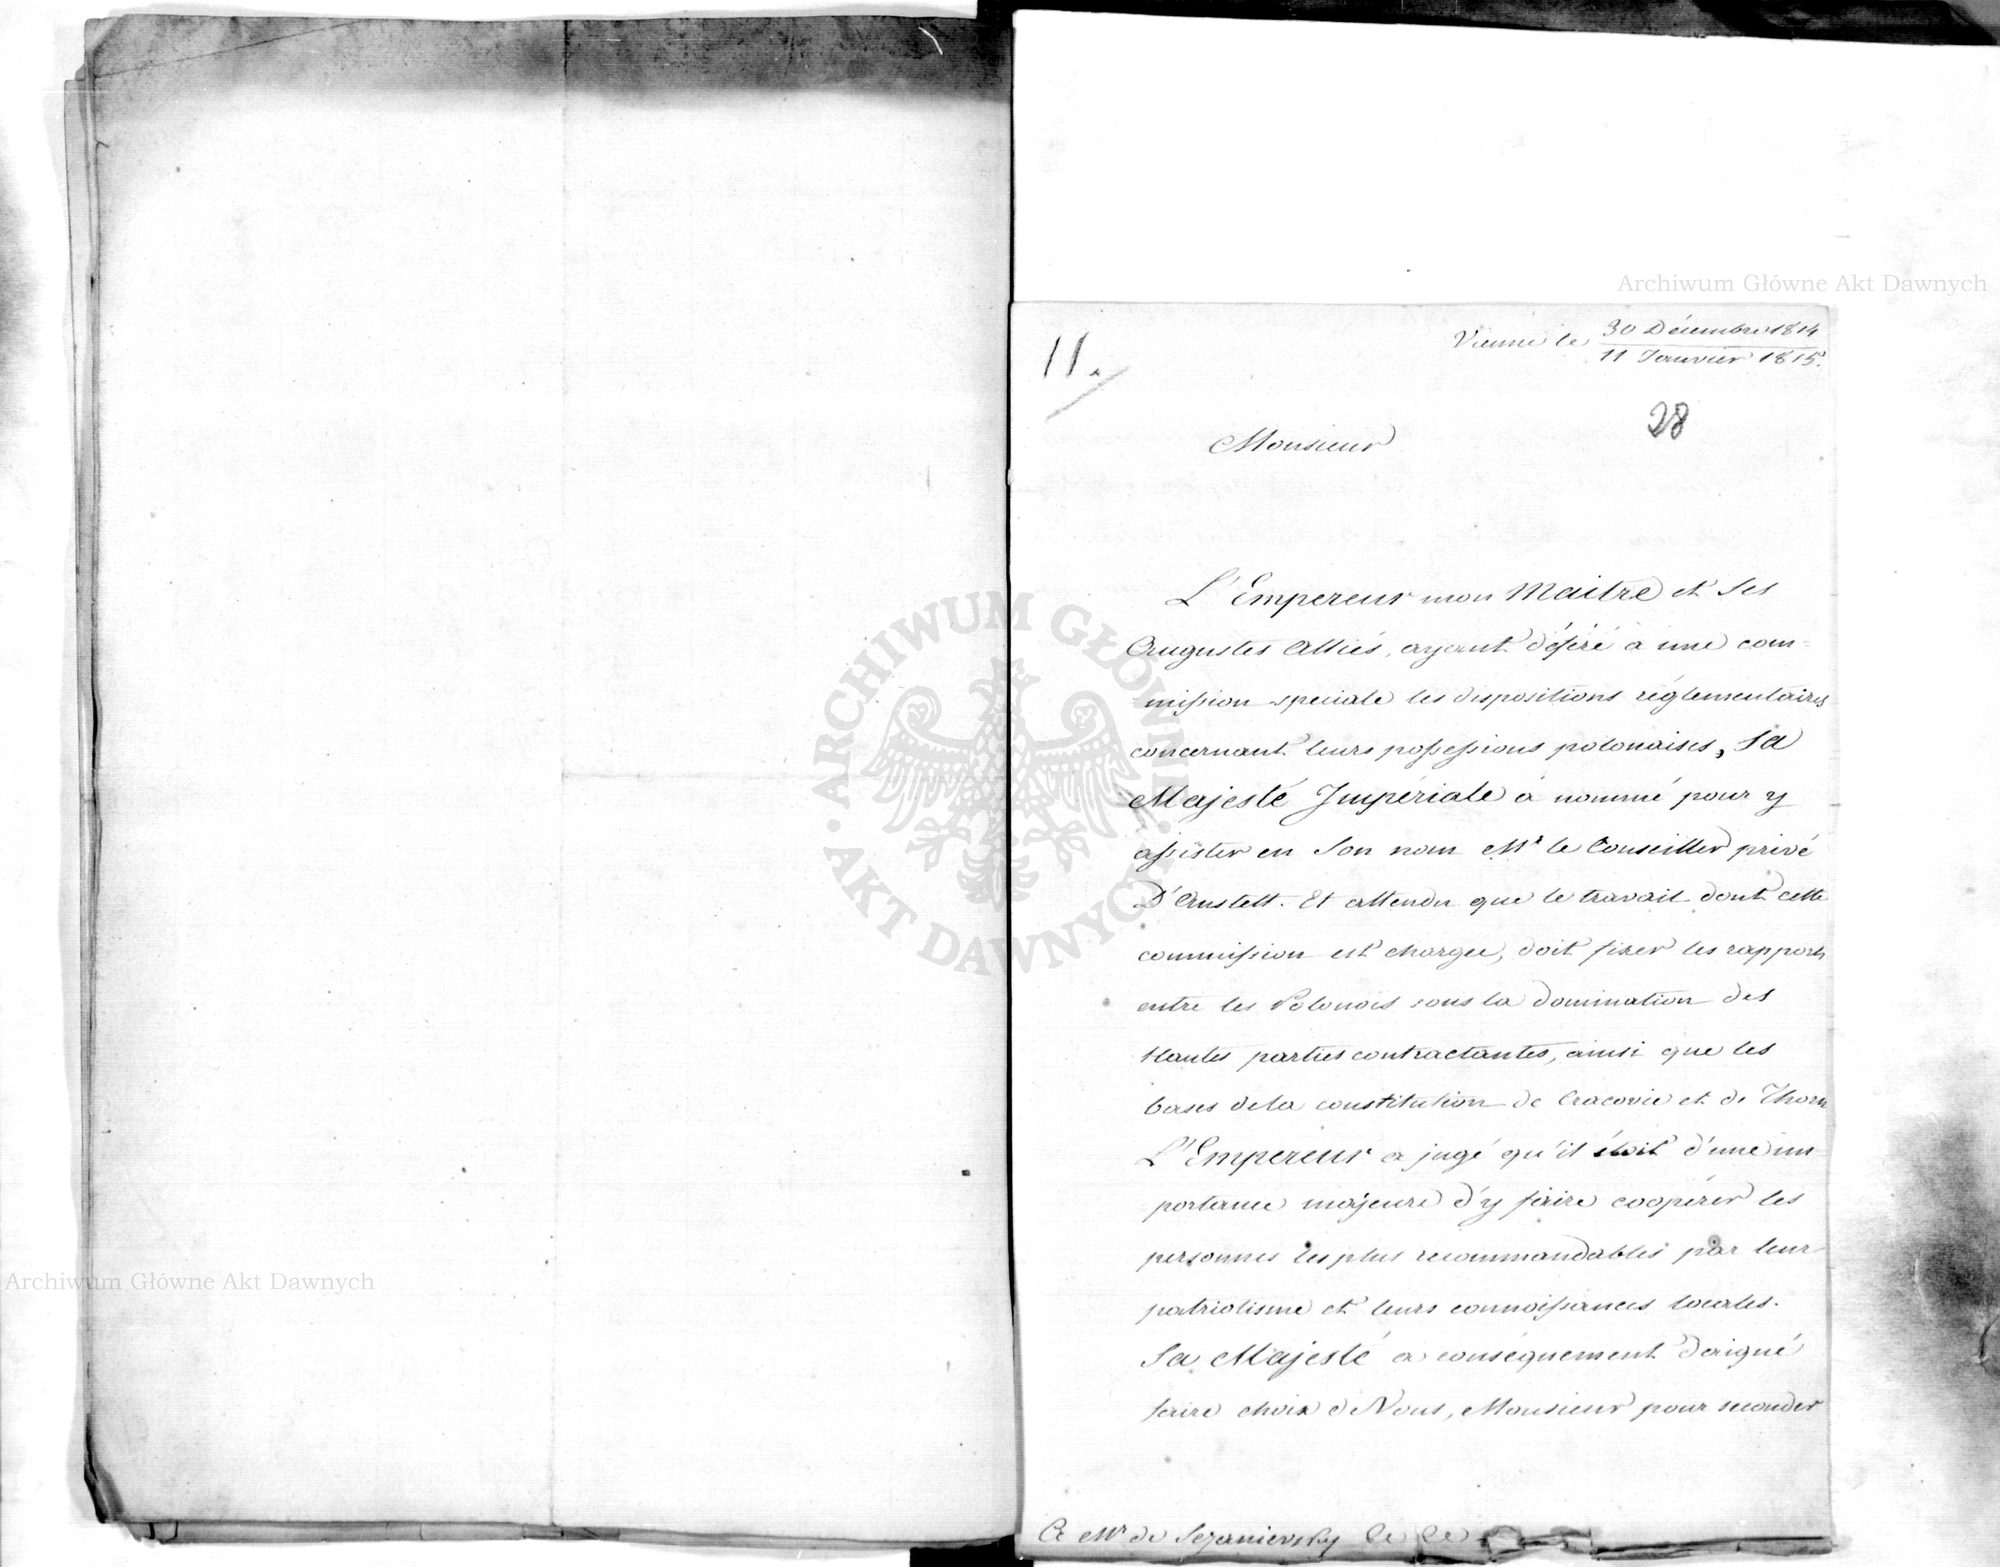 Archiwum Główne Akt Dawnych
Vienne le 30 Décembre 1814
11 Janvier 1815.
11.
28
Monsieur
L'Empereur mon Maitre et Ses
Augustes Alliés, ayant déféré à une com=
=mission speciale les dispositions réglementaires
concernant leurs possessions polonaises, Sa
Majesté Impériale a nommé pour y
assister en Son nom Mr le Conseiller privé
D'Anstett. Et attendu que le travail dont cette
commission est chargée, doit fixer les rapports
entre les Polonois sous la domination des
Hautes parties contractantes, ainsi que les
bases de la constitution de Cracovie et de Thorn
L'Empereur a jugé qu'il étoit d'une im
portance majeure d'y faire coopérer les
personnes les plus recommandables par leur
patriotisme et leurs connoissances locales.
Sa Majesté a conséquement daigné
faire choix de Vous, Monsieur pour seconder
A Mr de Sezanievsky
ARCHIWUM GŁÓWNE
AKT DAWNYCH
Archiwum Główne Akt Dawnych